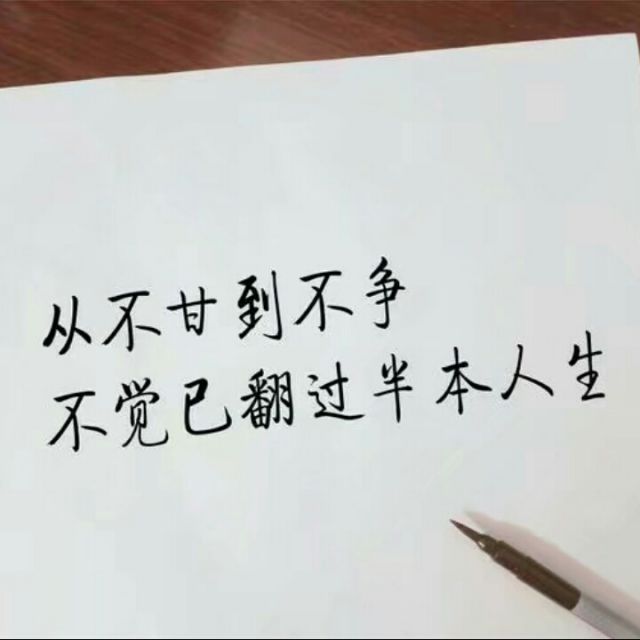 从不甘到不争
不觉已翻过半本人生